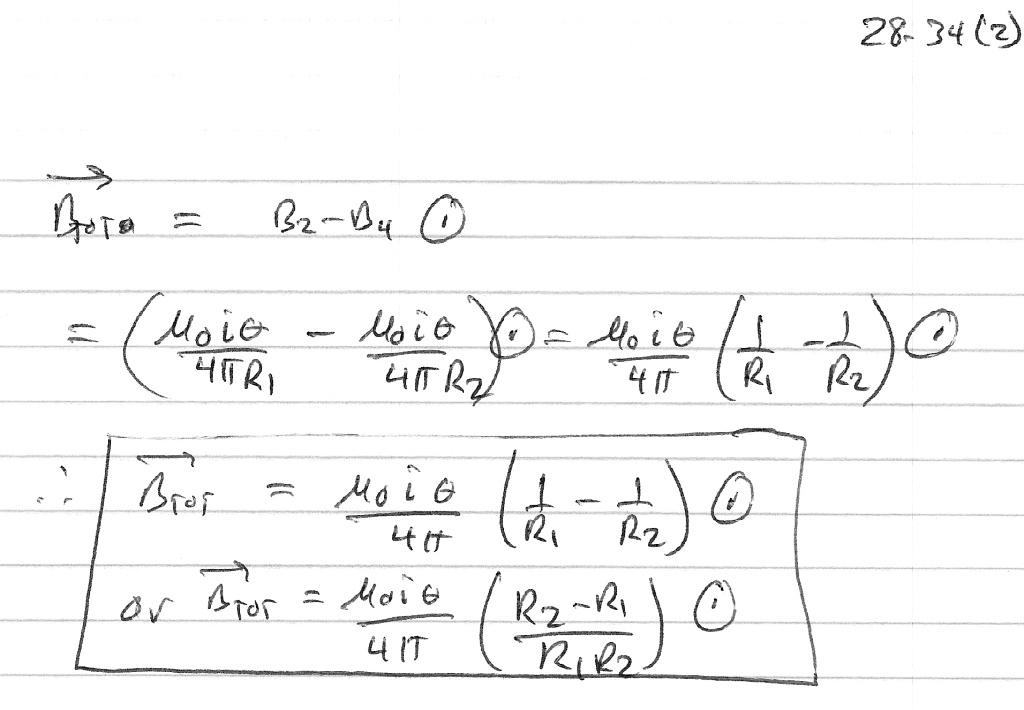 28-34(2)
B⃗_TOTAL = B₂ - B₄ ⊙
= (μ₀iθ/4πR₁ - μ₀iθ/4πR₂)⊙ = μ₀iθ/4π (1/R₁ - 1/R₂) ⊙
∴ B⃗_TOT = μ₀iθ/4π (1/R₁ - 1/R₂) ⊙
or B⃗_TOT = μ₀iθ/4π ((R₂-R₁)/(R₁R₂)) ⊙